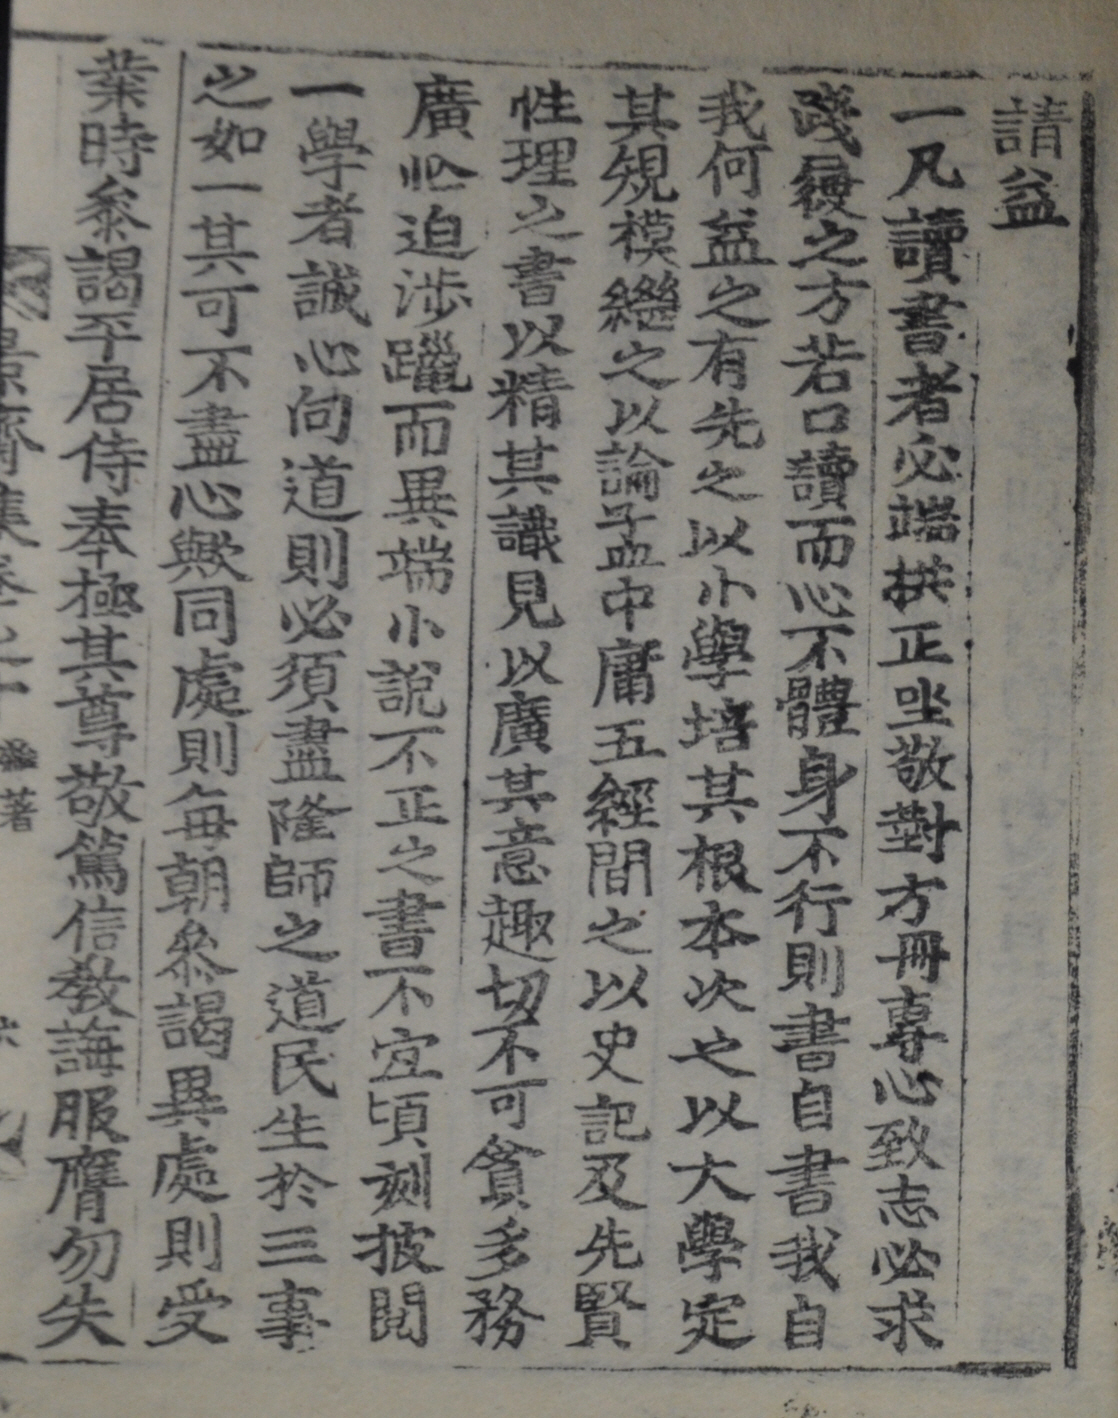 請益
一凡讀書者必端拱正坐敬對方冊專心致志必求
踐履之方若口讀而心不體身不行則書自書我自
我何益之有先之以小學培其根本次之以大學定
其規模繼之以論孟中庸五經間之以史記及先賢
性理之書以精其識見以廣其意趣切不可貪多務
廣忙迫涉躐而異端小說不正之書不宜頃刻披閱
一學者誠心向道則必須盡隆師之道民生於三事
之如一其可不盡心歟同處則每朝參謁異處則受
業時參謁平居侍奉極其尊敬篤信敎誨服膺勿失
齋集卷之 著